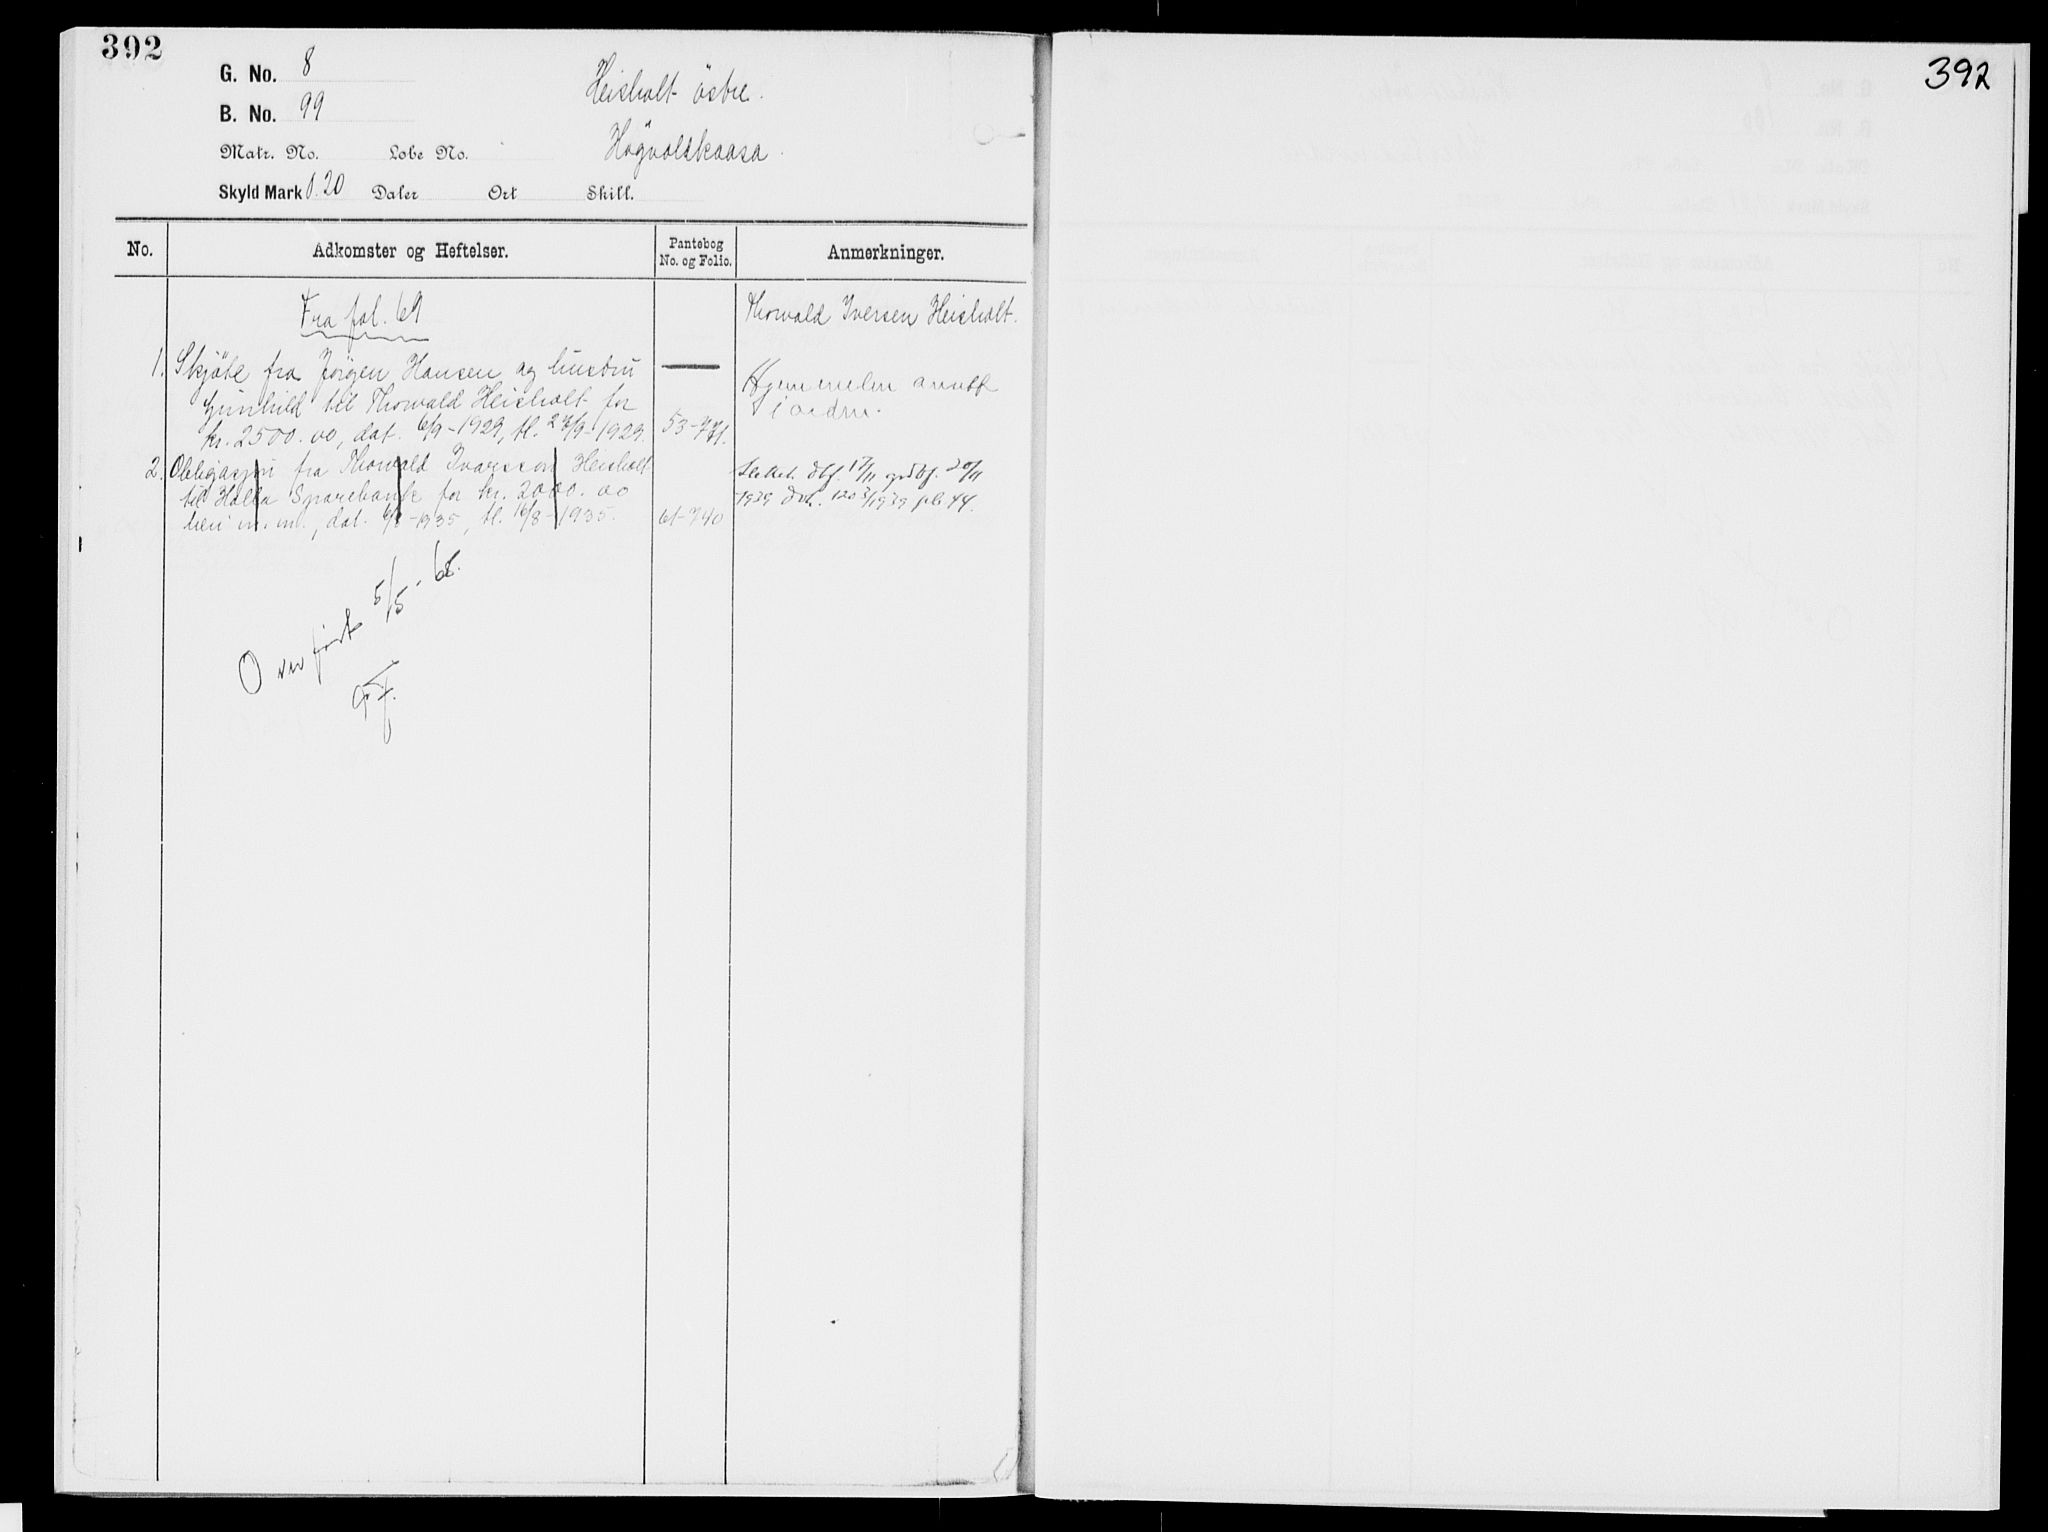 392
G. No. 8
Heisholt östre.
B. No. 99
Högvoldskaasa.
Matr. No. Løbe No.
Skyld Mark 0.20 Daler Ort Skill.
No. Adkomster og Heftelser. Pantebog No. og Folio. Anmerkninger.
Fra fol. 69
Thorvald Iversen Heisholt.
1. Skjöte fra Jörgen Hansen og hustru
Gunhild til Thorvald Heisholt for
kr. 2500.00, dat. 6/9-1929, tl. 27/9-1929. 53-771.
Hjemmelen
i orden.
2. Obligasjon fra Thorvald Ivarsson Heisholt
til Holla Sparebank for kr. 2000.00
heri m. m., dat. 6/8-1935, tl. 16/8-1935. 61-740
Slettet. dbf. 17/11 20/11
1939
Overført 5/5-68.
392